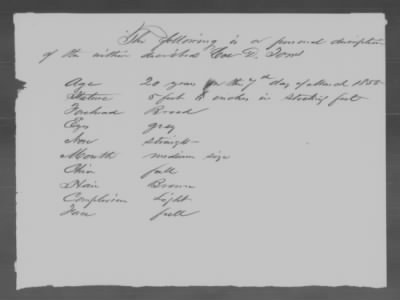 The following is a personal description
of the within described D.
Age 20 years on the 7th day of March 1855
Stature 5 feet inches in stocking feet
Forehead Broad
Eyes gray
Nose straight
Mouth medium size
Chin full
Hair Brown
Complexion Light
Face full